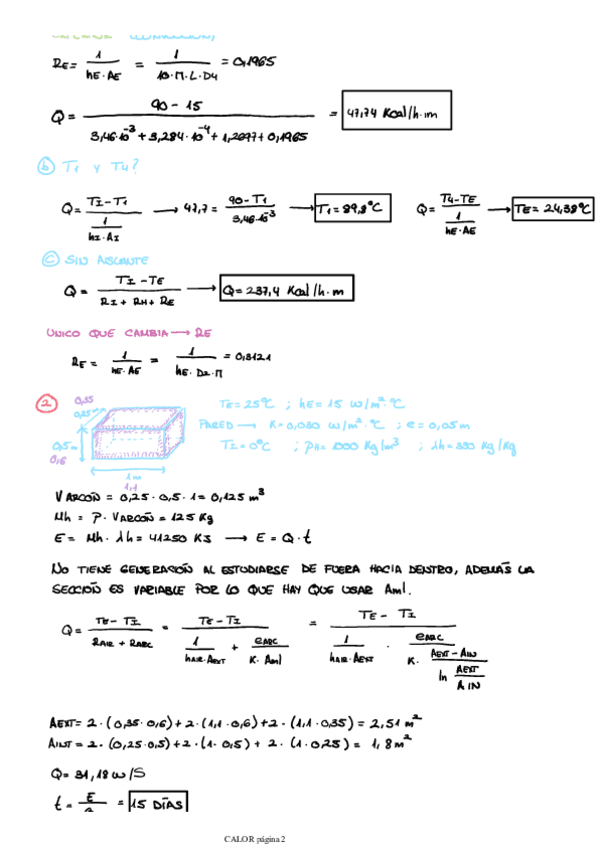 RE = 1 / hE·AE = 1 / 10·π·L·D4 = 0,1965
Q = 90 - 15 / 3,46·10⁻³ + 3,284·10⁻⁴ + 1,2697 + 0,1965 = 47,74 Kcal/h·m
b) T1 y T4?
Q = TI - T1 / 1 / hI·AI → 47,7 = 90 - T1 / 3,46·10⁻³ → T1 = 89,8°C Q = T4 - TE / 1 / hE·AE → TE = 24,38°C
C) SIN AISLANTE
Q = TI - TE / RI + RH + RE → Q = 237,4 Kcal/h·m
UNICO QUE CAMBIA → RE
RE = 1 / hE·AE = 1 / hE·D2·π = 0,3121
2 0,35 0,25m 0,5m 0,6 1m 1,1
TE = 25°C ; hE = 15 W/m²·°C
PARED → K = 0,080 W/m²·°C ; e = 0,05m
TI = 0°C ; ρH = 1000 Kg/m³ ; λh = 330 Kj/Kg
V ARCÓN = 0,25·0,5·1 = 0,125 m³
Mh = ρ·VARCÓN = 125 Kg
E = Mh·λh = 41250 KJ → E = Q·t
NO TIENE GENERACIÓN AL ESTUDIARSE DE FUERA HACIA DENTRO, ADEMÁS LA
SECCIÓN ES VARIABLE POR LO QUE HAY QUE USAR Aml.
Q = TE - TI / RAIR + RARC = TE - TI / 1 / hAIR·AEXT + eARC / K·Aml = TE - TI / 1 / hAIR·AEXT · eARC / K· AEXT - AIN / ln AEXT / AIN
AEXT = 2·(0,35·0,6) + 2·(1,1·0,6) + 2·(1,1·0,35) = 2,51 m²
AINT = 2·(0,25·0,5) + 2·(1·0,5) + 2·(1·0,25) = 1,8 m²
Q = 31,18 W/S
t = E / = 15 DÍAS
CALOR página 2